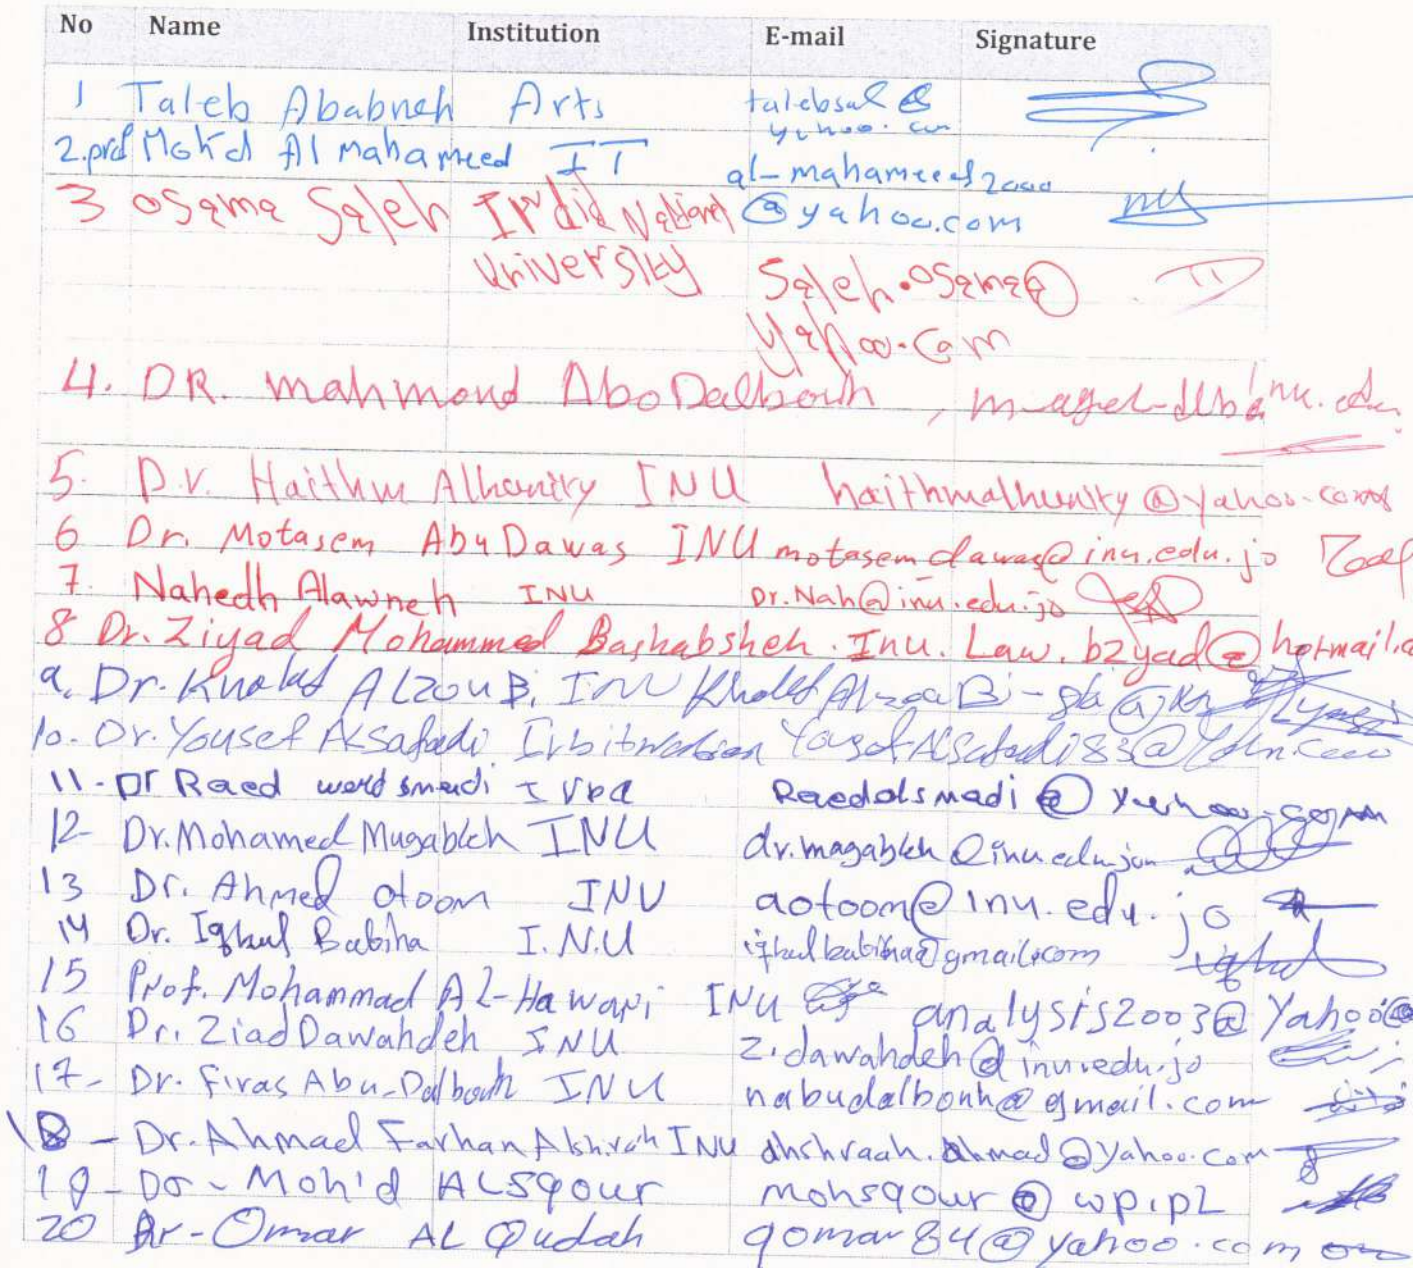 No Name Institution E-mail Signature
1 Taleb Ababneh Arts talebsal@
yahoo.com
2.prof Moh'd Al mahameed IT al-mahameed2000
@yahoo.com
3 Osama Saleh Irbid National
University Saleh.osama@
yahoo.com
4. DR. mahmoud AboDalbouh,
5. Dr. Haithm Alhunity INU haithmalhunity@yahoo.com
6 Dr. Motasem AbuDawas INU motasemdawas@inu.edu.jo
7. Nahedh Alawneh INU Dr.Nah@inu.edu.jo
8 Dr. Ziyad Mohammed Bashabsheh. Inu. Law. bzyad@hotmail.c
9. Dr. Khaled ALZOUBi INU
10- Dr. Yousef Alsafadi
11- Dr Raed Raedalsmadi@yahoo.com
12- Dr. Mohamed Mugableh INU dr.magableh@inu.edu.jon
13 Dr. Ahmed otoom INU aotoom@inu.edu.jo
14 Dr. Iqbal Babiha I.N.U iqbalbabihaa@gmail.com
15 Prof. Mohammad AL-Hawari INU analysis2003@Yahoo
16 Dr. Ziad Dawahdeh INU z.dawahdeh@inu.edu.jo
17- Dr. Firas Abu-Dalbouh INU nabudalbouh@gmail.com
18- Dr. Ahmad Farhan INU ahshraah.ahmad@yahoo.com
19- Dr- Moh'd ALSQour mohsqour@wp.pl
20 Dr-Omar AL Qudah qomar84@yahoo.com